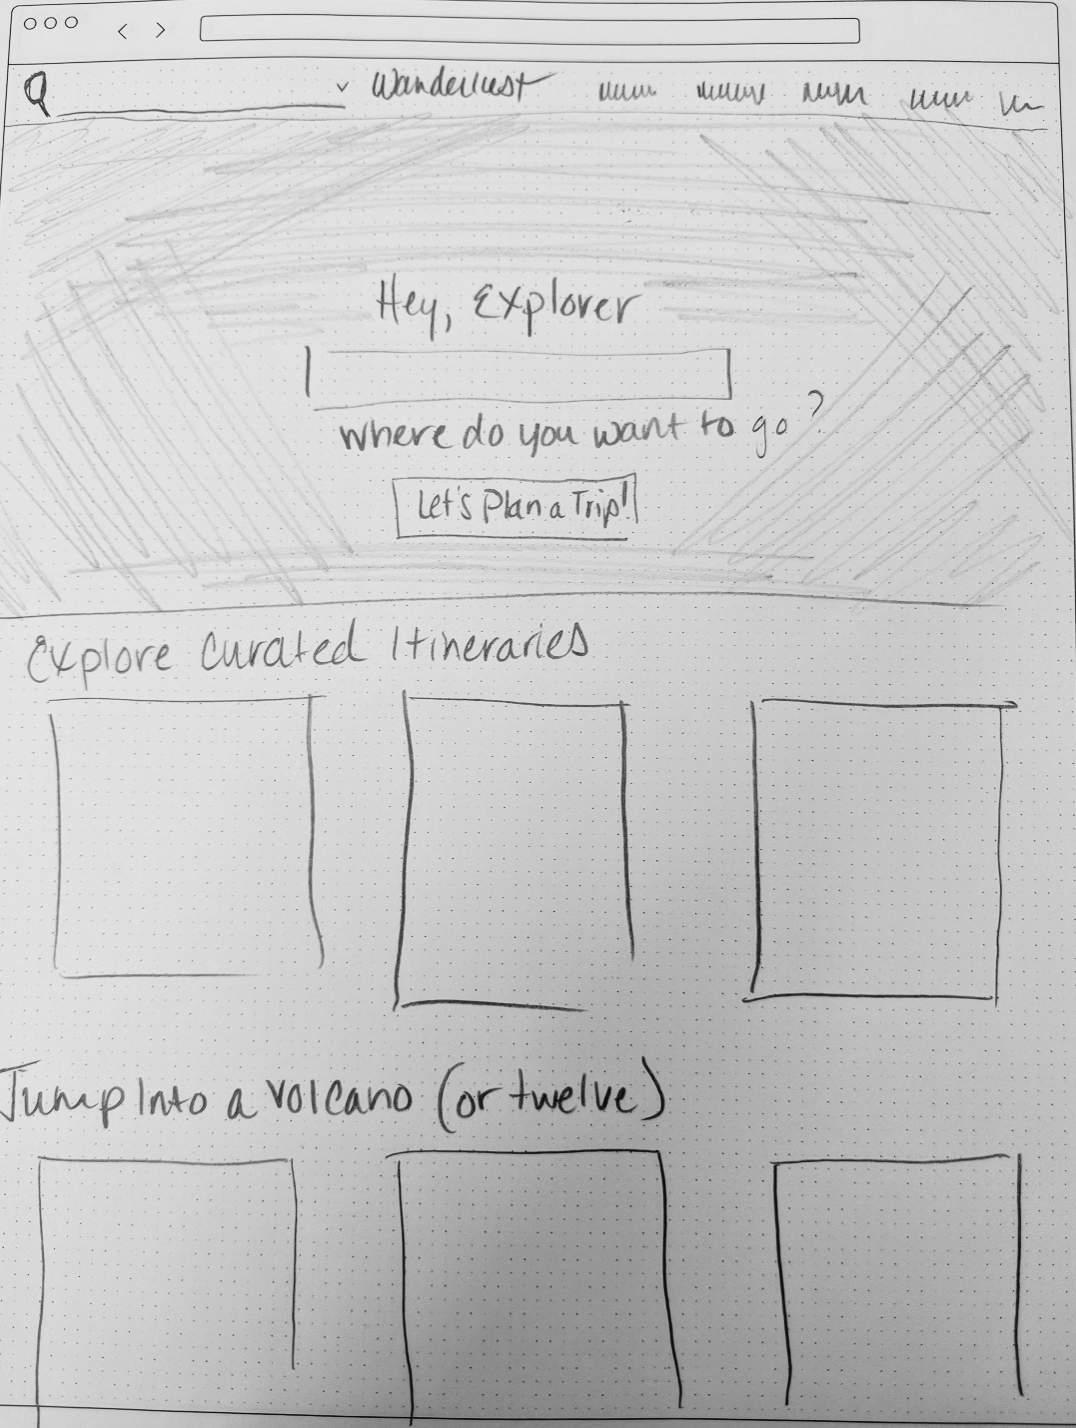 Wanderlust
Hey, Explorer
where do you want to go?
Let's Plan a Trip!
Explore Curated Itineraries
Jump Into a volcano (or twelve)